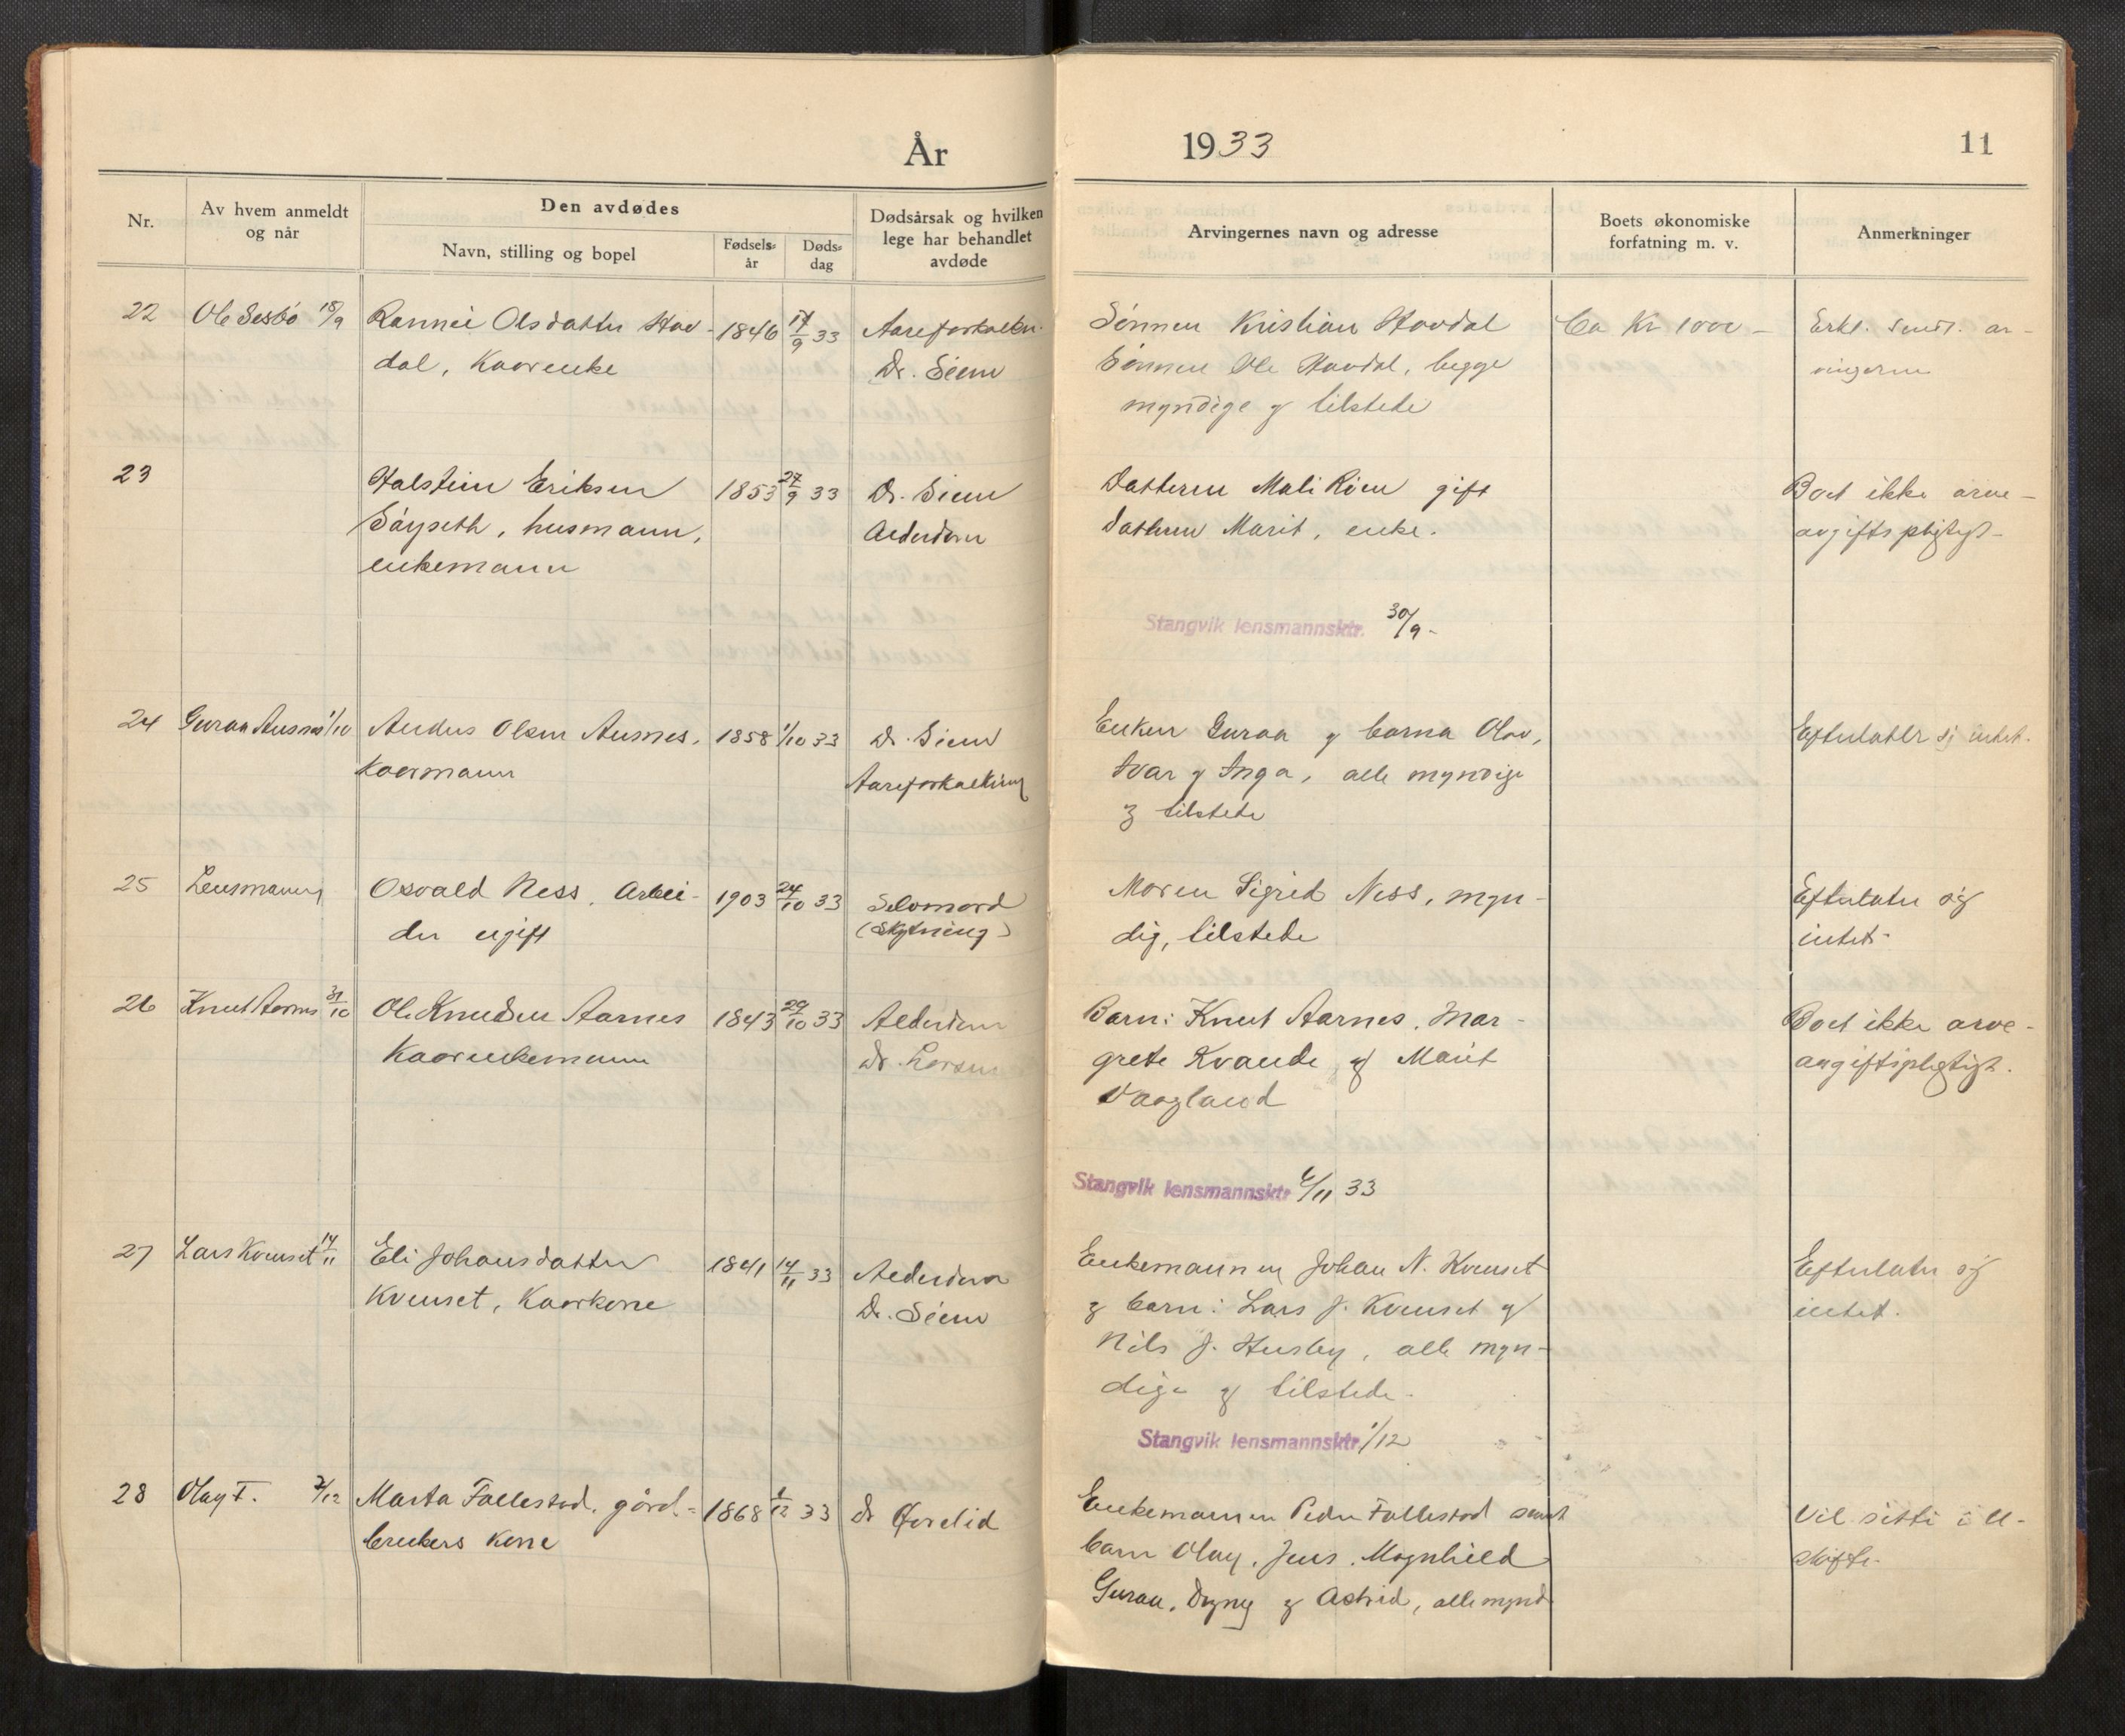 År 1933
11
Nr.
Av hvem anmeldt
og når
Den avdødes
Navn, stilling og bopel
Fødsels-
år
Døds-
dag
Dødsårsak og hvilken
lege har behandlet
avdøde
Arvingernes navn og adresse
Boets økonomiske
forfatning m. v.
Anmerkninger
22 Ole Sesbö 18/9 Rannei Olsdatter Hav- 1846 17/9 33 Aareforkalkn. Sönnen Kristian Havdal Ca Kr 1000 - Erkl. sendt. ar-
dal, Kaarenke Dr. Siem Sönnen Ole Havdal, begge vingerne
myndige og tilstede
23 Halstein Eriksen 1853 27/9 33 Dr. Siem Datteren Mali Röen gift Boet ikke arve-
Säyseth, husmann, Alderdom datteren Marit, enke. avgiftspligtigt-
enkemann
Stangvik lensmannsktr. 30/9-
24 Guraa Ausnes 1/10 Anders Olsen Ausnes, 1858 1/10 33 Dr. Siem Enken Guraa og barna Olav, Efterlater sj intet.
Kaarmann Aareforkalkning Ivar og Inga, alle myndige
og tilstede
25 Lensmannen Osvald Ness, Arbei- 1903 24/10 33 Selvmord Moren Sigrid Ness, myn- Efterlater sig
der ugift (Skytning) dig, tilstede intet-
26 Knut Aarnes 31/10 Ole Knudsen Aarnes 1843 29/10 33 Alderdom Barn: Knut Aarnes, Mar- Boet ikke arve-
Kaarenkemann Dr. grete Kvande, og Marit avgiftspligtigt.
Vaagland
Stangvik lensmannsktr 6/11 33
27 Lars Kvenset 14/11 Eli Johansdatter 1841 14/11 33 Alderdom Enkemannen Johan N. Kvenset Efterlater sig
Kvenset, Kaarkone Dr. Siem og barn: Lars J. Kvenset og intet.
Nils J. Husby, alle myn-
dige og tilstede.
Stangvik lensmannsktr. 1/12
28 Olay F. 7/12 Marta Fallestad, gård- 1868 1/12 33 dr Øvrelid Enkemannen Peder Fallestad samt Vil sitte i u-
brukers kone barn Olay, Jens, Magnhild skifte-
Guraa, Dagny og Astrid, alle mynd.